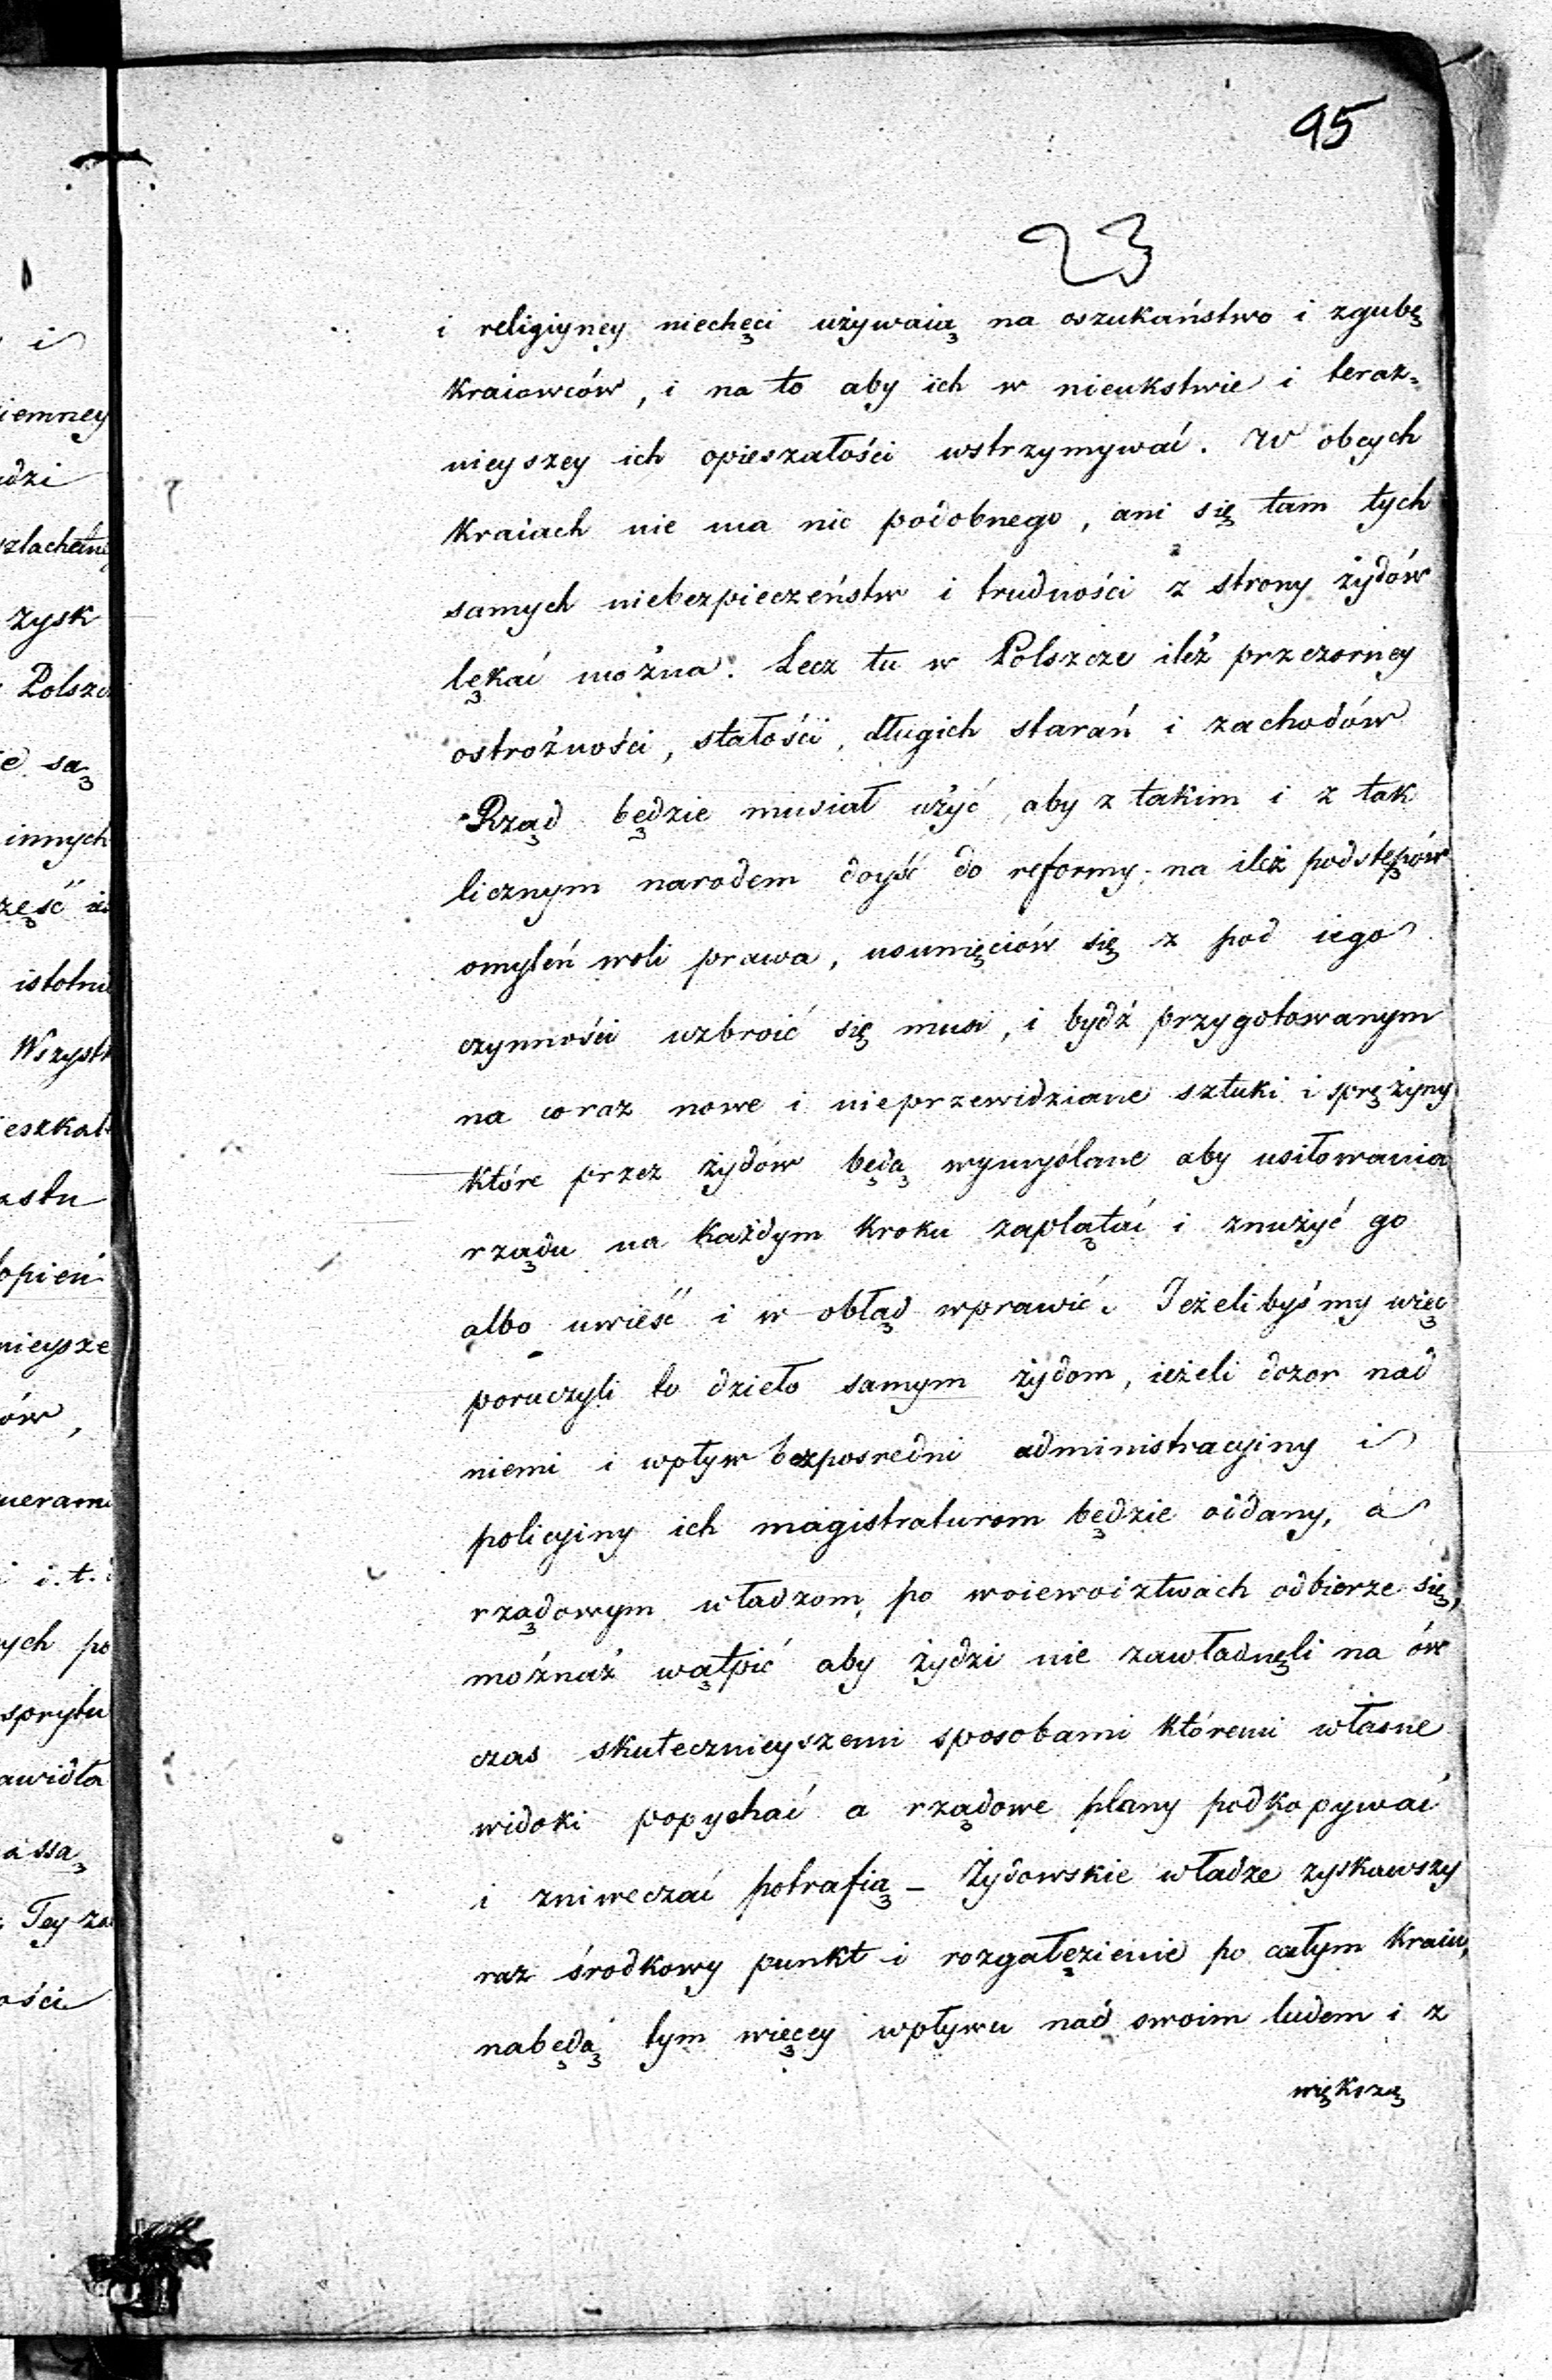 95
23
i religiyney niechęci używaią na oszukaństwo i zgubę
kraiowców, i na to aby ich w nieukstwie i teraz=
nieyszey ich opieszałości wstrzymywać. W obcych
kraiach nie ma nic podobnego, ani się tam tych
samych niebezpieczeństw i trudności z strony żydów
lękać można. Lecz tu w Polszcze ileż przezorney
ostrożności, stałości, długich starań i zachodów
Rząd będzie musiał użyć, aby z takim i z tak
licznym narodem doyść do reformy. na ileż podstępów
omyleń woli prawa, usunięciów się z pod iego
czynności uzbroić się musi, i bydź przygotowanym
na coraz nowe i nieprzewidziane sztuki i sprężyny
które przez żydów będą wymyślane aby usiłowania
rządu na każdym kroku zaplątać i znużyć go
albo uwieść i w obłąd wprawić. Jeżelibyśmy więc
poruczyli to dzieło samym żydom, ieżeli dozor nad
niemi i wpływ bezposredni administracyiny i
policyiny ich magistraturom będzie oddany, a
rządowym władzom po woiewodztwach odbierze się,
możnaż wątpić aby żydzi nie zawładnęli na ów
czas skutecznieyszemi sposobami któremi własne
widoki popychać a rządowe plany podkopywać
i zniweczać potrafią - Żydowskie władze zyskawszy
raz środkowy punkt i rozgałęzienie po całym kraiu,
nabędą tym więcey wpływu nad swoim ludem i z
większą
i
iemney
zysk
są
innych